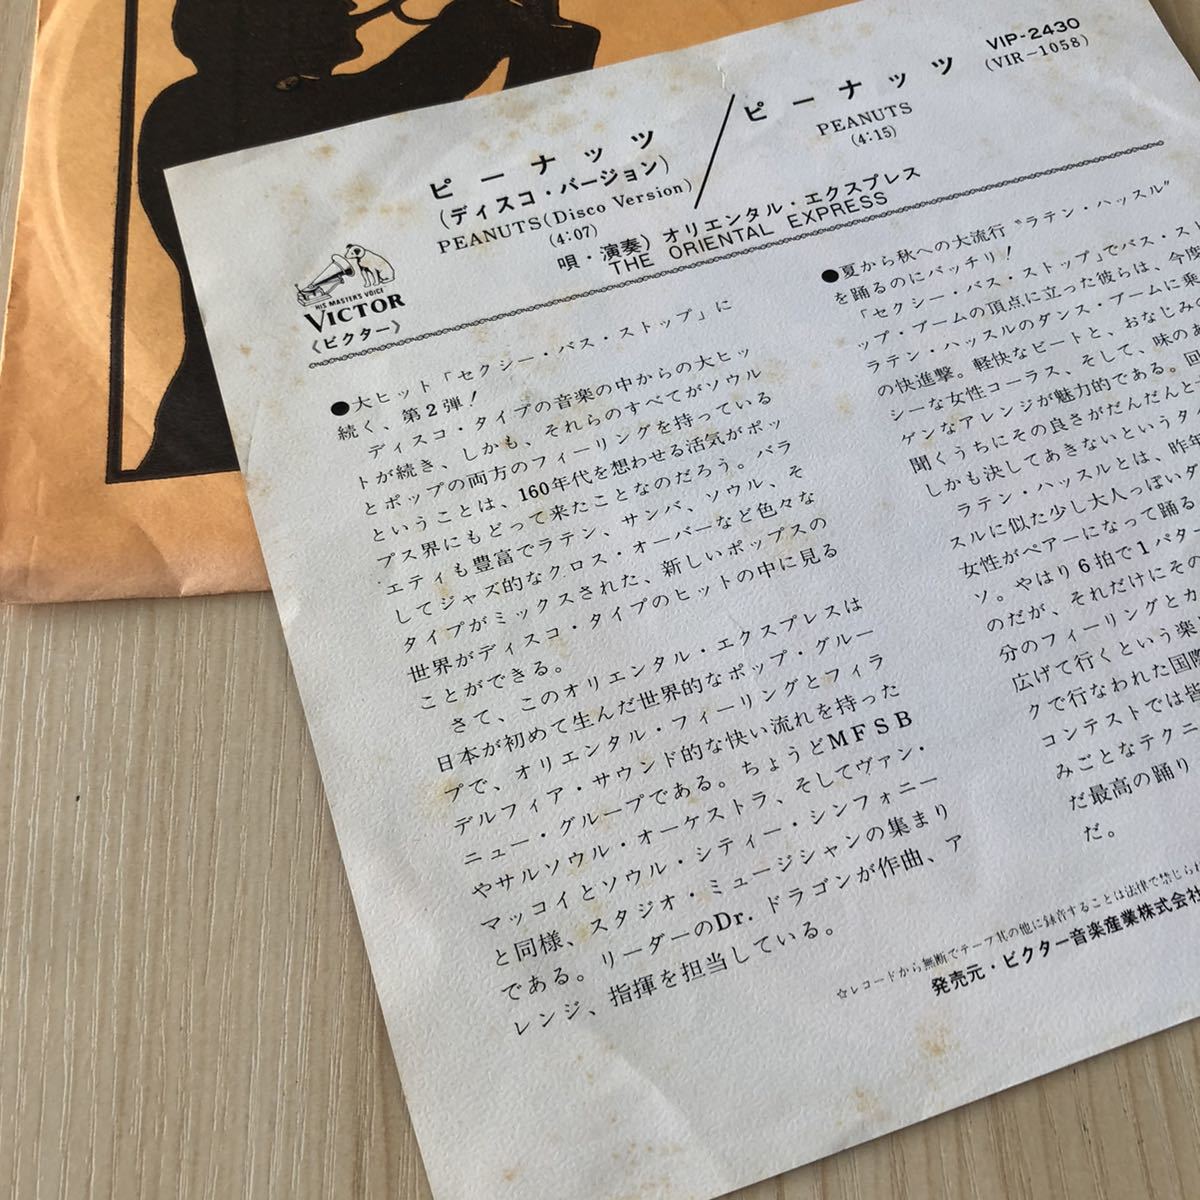 VIP-2430
(VIR-1058)
ピーナッツ
(ディスコ・バージョン)
PEANUTS(Disco Version)
(4:07)
ピーナッツ
PEANUTS
(4:15)
唄・演奏）オリエンタル・エクスプレス
THE ORIENTAL EXPRESS
HIS MASTER'S VOICE
VICTOR
《ビクター》
●大ヒット「セクシー・バス・ストップ」に
続く、第2弾！
ディスコ・タイプの音楽の中からの大ヒッ
トが続き、しかも、それらのすべてがソウル
とポップの両方のフィーリングを持っている
ということは、160年代を想わせる活気がポッ
プス界にもどって来たことなのだろう。バラ
エティも豊富でラテン、サンバ、ソウル、そ
してジャズ的なクロス・オーバーなど色々な
タイプがミックスされた、新しいポップスの
世界がディスコ・タイプのヒットの中に見る
ことができる。
さて、このオリエンタル・エクスプレスは
日本が初めて生んだ世界的なポップ・グルー
プで、オリエンタル・フィーリングとフィラ
デルフィア・サウンド的な快い流れを持った
ニュー・グループである。ちょうどMFSB
やサルソウル・オーケストラ、そしてヴァン・
マッコイとソウル・シティー・シンフォニー
と同様、スタジオ・ミュージシャンの集まり
である。リーダーのDr. ドラゴンが作曲、ア
レンジ、指揮を担当している。
●夏から秋への大流行“ラテン・ハッスル”
を踊るのにバッチリ！
「セクシー・バス・ストップ」でバス・スト
ップ・ブームの頂点に立った彼らは、今度
ラテン・ハッスルのダンス・ブームに乗
の快進撃。軽快なビートと、おなじみ
シーな女性コーラス、そして、味のあ
ゲンなアレンジが魅力的である。回
聞くうちにその良さがだんだんと
しかも決してあきないというタ
ラテン・ハッスルとは、昨年
スルに似た少し大人っぽいダ
女性がペアーになって踊る
ソ。やはり6拍で1パタ
のだが、それだけにその
分のフィーリングとカ
広げて行くという楽し
クで行なわれた国際
コンテストでは皆
みごとなテクニ
だ最高の踊り
だ。
☆レコードから無断でテープ其の他に録音することは法律で禁じられ
発売元・ビクター音楽産業株式会社